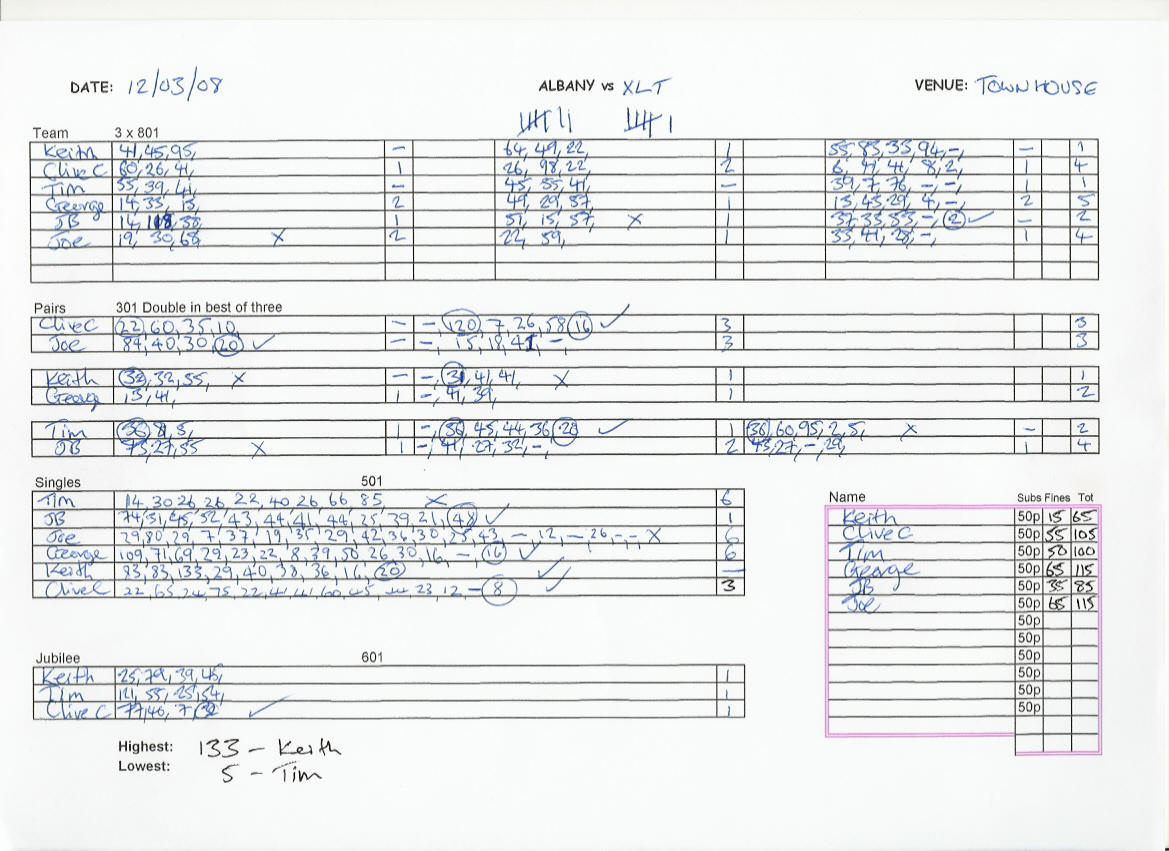 DATE: 12/03/08 ALBANY vs XLT VENUE: TOWNHOUSE
Team 3 x 801
Keith 41, 45, 95, – 64, 49, 22, 1 55, 83, 33, 94, –, – 1
Clive C 60, 26, 41, 1 26, 98, 22, 2 6, 41, 41, 8, 2, 1 4
Tim 55, 39, 41, – 45, 55, 41, – 39, 7, 76, –, –, 1 1
George 14, 33, 13, 2 49, 29, 57, 1 13, 45, 29, 4, –, 2 5
JB 14, 38, 1 51, 15, 57, X 1 37, 33, 53, –, (2) ✓ – 2
Joe 19, 30, 68, X 2 22, 59, 1 33, 41, 28, –, 1 4
Pairs 301 Double in best of three
Clive C (22), 60, 35, 10, – –, (120), 7, 26, 58, (16) ✓ 3 3
Joe 84, 40, 30, (20) ✓ – –, 15, 18, 41, –, 3 3
Keith (32), 32, 55, X – –, (31), 41, 41, X 1 1
George 13, 41, 1 –, 41, 39, 1 2
Tim (36), 8, 5, 1 –, (36), 45, 44, 36, (28) ✓ 1 (36), 60, 95, 2, 5, X – 2
JB 73, 27, 55 X 1 –, 41, 27, 32, –, 2 43, 27, –, 29, 1 4
Singles 501
Tim 14, 30, 26, 26, 22, 40, 26, 66, 85, X 6
JB 74, 51, 45, 52, 43, 44, 41, 44, 25, 39, 21, (48) ✓ 1
Joe 29, 80, 29, 7, 37, 19, 35, 29, 42, 36, 30, 25, 43, –, 12, – 26, –, – X 6
George 109, 71, 69, 29, 23, 22, 8, 39, 50, 26, 30, 16, – (16) ✓ 6
Keith 83, 83, 133, 29, 40, 38, 36, 16, (20) ✓ –
Clive C 22, 65, 24, 75, 22, 41, 41, 60, 45, 23, 12, – (8) ✓ 3
Name Subs Fines Tot
Keith 50p 15 65
Clive C 50p 55 105
Tim 50p 50 100
George 50p 65 115
JB 50p 35 85
Joe 50p 65 115
50p
50p
50p
50p
50p
50p
Jubilee 601
Keith 25, 79, 39, 45, 1
Tim 121, 55, 25, 54, 1
Clive C 77, 46, 7, (32) ✓ 1
Highest: 133 – Keith
Lowest: 5 – Tim